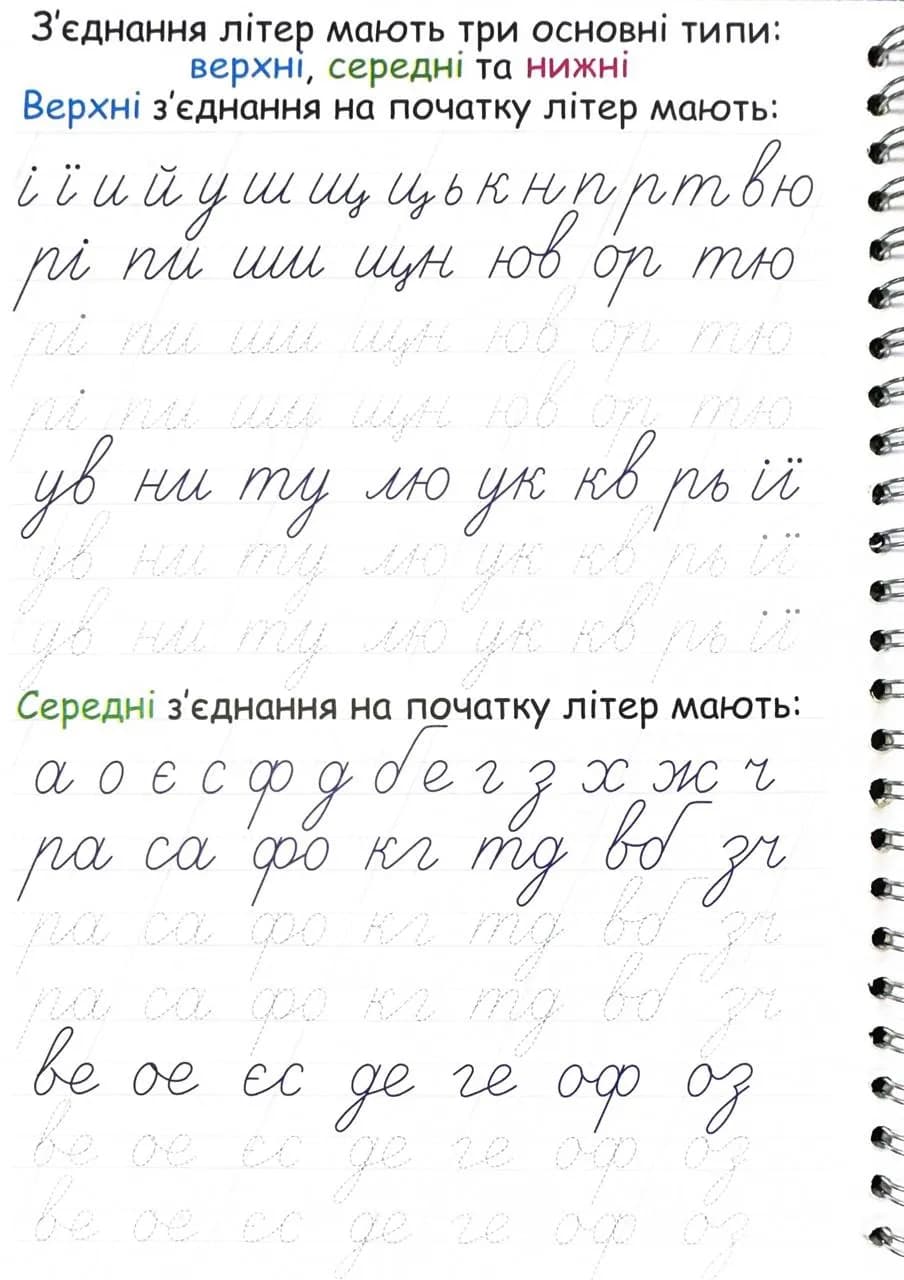 З'єднання літер мають три основні типи:
верхні, середні та нижні
Верхні з'єднання на початку літер мають:
і ї и й у ш щ ц ь к н п р т в ю
рі пи ши щн юв ор тю
рі пи ши щн юв ор тю
рі пи ши щн юв ор тю
ув ни ту лю ук кв рь ії
ув ни ту лю ук кв рь ії
ув ни ту лю ук кв рь ії
Середні з'єднання на початку літер мають:
а о є с ф д б е г з х ж ч
ра са фо кг тд вб зч
ра са фо кг тд вб зч
ра са фо кг тд вб зч
ве ое єс де ге оф оз
ве ое єс де ге оф оз
ве ое єс де ге оф оз